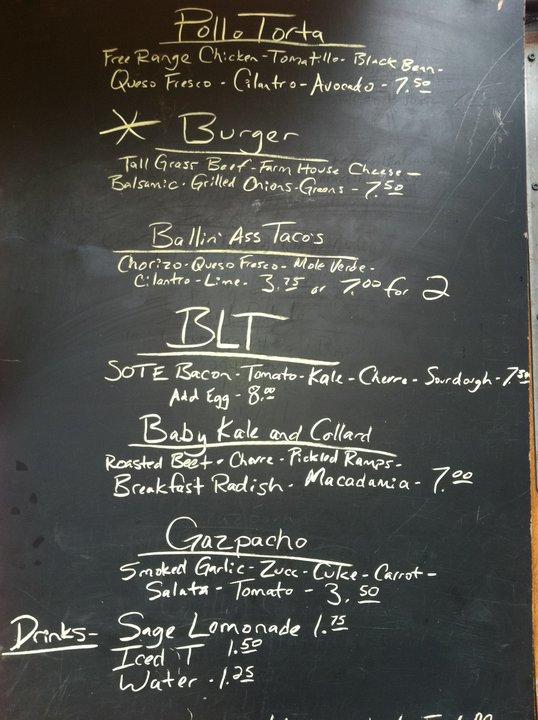 Pollo Torta
Free Range Chicken - Tomatillo - Black Bean -
Queso Fresco - Cilantro - Avocado - 7.50
Burger
Tall Grass Beef - Farm House Cheese -
Balsamic - Grilled Onions - Greens - 7.50
Ballin' Ass Taco's
Chorizo - Queso Fresco - Mole Verde -
Cilantro - Lime - 3.75 or 7.00 for 2
BLT
SOTE Bacon - Tomato - Kale - Chevre - Sourdough - 7.50
Add Egg - 8.00
Baby Kale and Collard
Roasted Beet - Chevre - Pickled Ramps -
Breakfast Radish - Macadamia - 7.00
Gazpacho
Smoked Garlic - Zucc - Cuke - Carrot -
Salata - Tomato - 3.50
Drinks - Sage Lomonade 1.75
Iced T 1.50
Water - 1.25